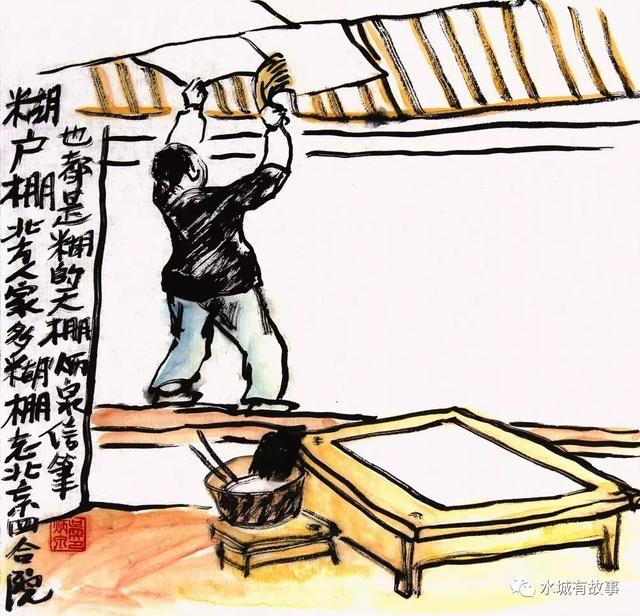 糊户棚北方人家多糊棚老北京四合院
也都是糊的天棚炳泉信筆
水城有故事